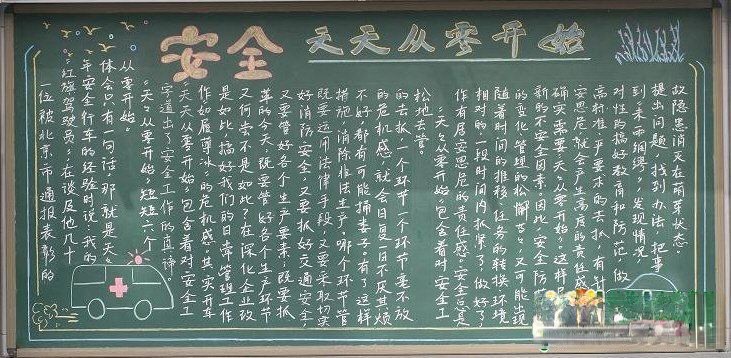 安全 天天从零开始
一位被北京市通报表彰的
“红旗驾驶员”，在谈及他几十
年安全行车的经验时说：我的
体会只有一句话，那就是天天
从零开始。
“天天从零开始”短短六个
字道出了安全工作的真谛。
“天天从零开始”包含着对安全工
作如履薄冰”的危机感。其实开车
是如此，搞好我们的日常管理工作
又何尝不是如此？在深化企业改
革的今天，既要管好各个生产环节
又要管好各个生产要素；既要抓
好消防安全，又要抓好交通安全；
既要运用法律手段，又要采取切实
措施，消除非法生产。哪个环节管
不好都有可能捅娄子。有了这样
的危机感，就会日复一日不厌其烦
的去抓，一个环节一个环节毫不放
松地去管。
“天天从零开始”包含着对安全工
作有居安思危的责任感。安全总是
相对的，一段时间内抓紧了，做好了，
随着时间的推移，任务的转换，环境
的变化，管理的松懈等，又可能出现
新的不安全因素。因此，安全防
确实需要天天“从零开始”。这样
安思危，就会产生高度的责任感
高标准、严要求的去抓，有针
对性的搞好教育和防范，做
到“未雨绸缪”，发现情况，
提出问题，找到办法，把事
故隐患消灭在萌芽状态。